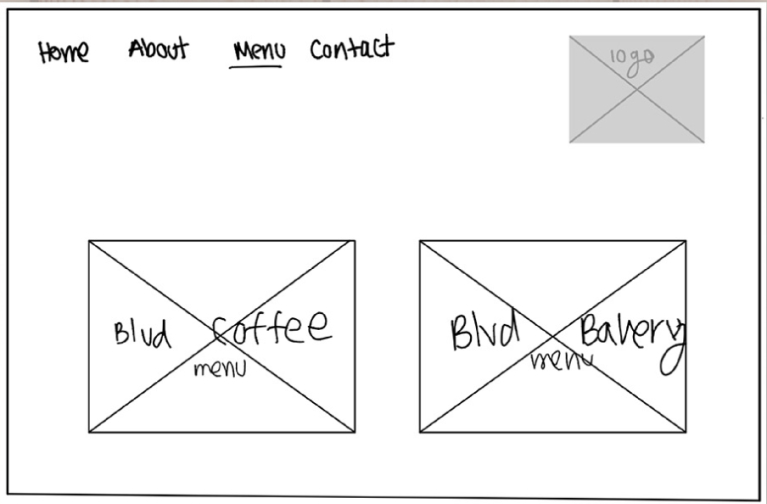 Home About Menu Contact
logo
Blvd Coffee
menu
Blvd Bakery
menu